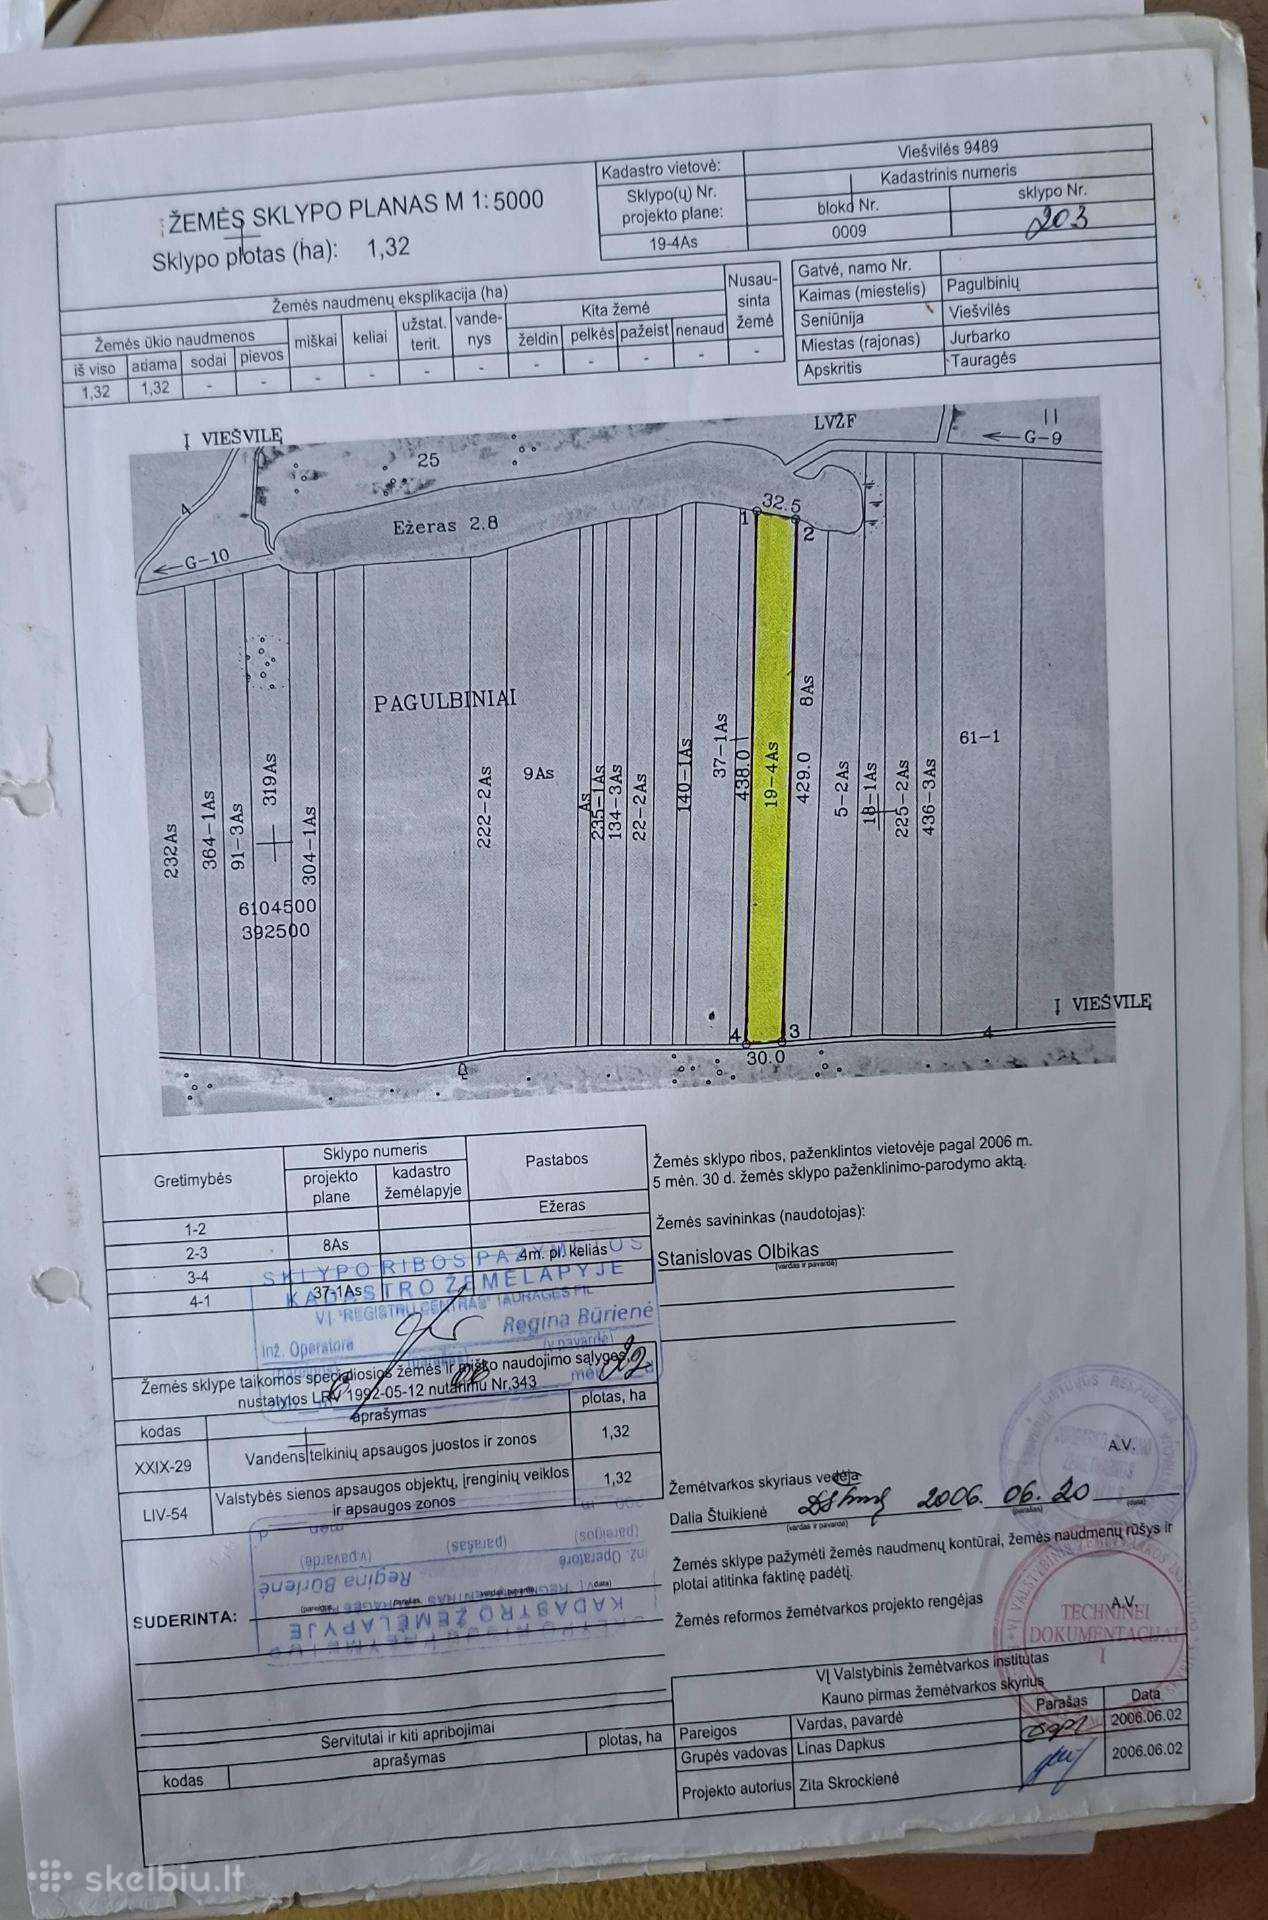 ŽEMĖS SKLYPO PLANAS M 1:5000
Sklypo plotas (ha): 1,32
Kadastro vietovė:
Viešvilės 9489
Sklypo(ų) Nr.
projekto plane:
19-4As
Kadastrinis numeris
bloko Nr.
sklypo Nr.
0009
203
Žemės naudmenų eksplikacija (ha)
Žemės ūkio naudmenos
miškai
keliai
užstat.
terit.
vande-
nys
Kita žemė
Nusau-
sinta
žemė
iš viso
ariama
sodai
pievos
želdin
pelkės
pažeist
nenaud
1,32 1,32 - - - - - - - - - - -
Gatvė, namo Nr.
Kaimas (miestelis) Pagulbinių
Seniūnija Viešvilės
Miestas (rajonas) Jurbarko
Apskritis Tauragės
Į VIEŠVILĘ
25
LVŽF
11
G-9
4
G-10
Ežeras 2.8
1
32.5
2
PAGULBINIAI
232As
364-1As
91-3As
319As
304-1As
222-2As
9As
As
235-1As
134-3As
22-2As
140-1As
37-1As
438.0
19-4As
429.0
8As
5-2As
18-1As
225-2As
436-3As
61-1
6104500
392500
Į VIEŠVILĘ
4
4
3
30.0
Gretimybės
Sklypo numeris
projekto
plane
kadastro
žemėlapyje
Pastabos
1-2 Ežeras
2-3 8As
3-4 4m. pl. kelias
4-1 37-1As
SKLYPO RIBOS PAŽYMĖTOS
KADASTRO ŽEMĖLAPYJE
VĮ "REGISTRŲ CENTRAS" TAURAGĖS FIL
Inž. Operatorė
Regina Būrienė
(v.pavardė)
Žemės sklype taikomos specialiosios žemės ir miško naudojimo sąlygos,
nustatytos LRV 1992-05-12 nutarimu Nr.343
kodas
aprašymas
plotas, ha
XXIX-29 Vandens telkinių apsaugos juostos ir zonos 1,32
LIV-54
Valstybės sienos apsaugos objektų, įrenginių veiklos
ir apsaugos zonos
1,32
Žemės sklypo ribos, paženklintos vietovėje pagal 2006 m.
5 mėn. 30 d. žemės sklypo paženklinimo-parodymo aktą.
Žemės savininkas (naudotojas):
Stanislovas Olbikas
(vardas ir pavardė)
Žemėtvarkos skyriaus vedėja
A.V.
Dalia Štuikienė
2006. 06. 20
(vardas ir pavardė)
(parašas)
(data)
Žemės sklype pažymėti žemės naudmenų kontūrai, žemės naudmenų rūšys ir
plotai atitinka faktinę padėtį.
Žemės reformos žemėtvarkos projekto rengėjas
A.V.
TECHNINEI
DOKUMENTACIJAI
1
Inž. Operatorė
(pareigos)
(parašas)
(v.pavardė)
Regina Būrienė
KADASTRO ŽEMĖLAPYJE
SUDERINTA:
Servitutai ir kiti apribojimai
kodas
aprašymas
plotas, ha
VĮ Valstybinis žemėtvarkos institutas
Kauno pirmas žemėtvarkos skyrius
Pareigos
Vardas, pavardė
Parašas
Data
Grupės vadovas Linas Dapkus 2006.06.02
Projekto autorius Zita Skrockienė 2006.06.02
skelbiu.lt